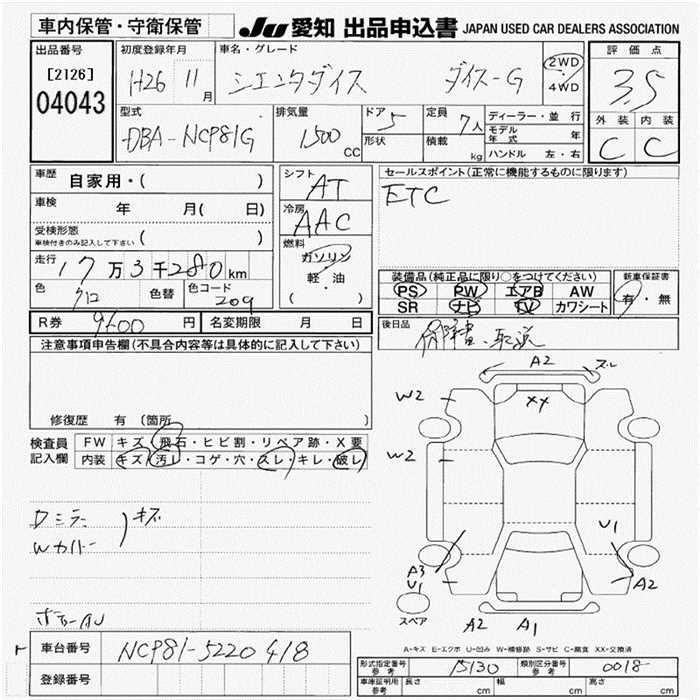 車内保管・守衛保管
JU 愛知 出品申込書 JAPAN USED CAR DEALERS ASSOCIATION
出品番号
[2126]
04043
初度登録年月
H26 11月
車名・グレード
シエンタダイス ダイス-G
2WD
・
4WD
評価点
3.5
外装 内装
C C
型式
DBA-NCP81G
排気量
1500 CC
ドア 5
形状
定員 7人
積載 kg
ディーラー・並行
モデル年式 年
ハンドル 左・右
車歴 自家用・( )
車検 年 月( 日)
受検形態
車検付きのみ記入して下さい ( )
走行 17万3千280km
色 クロ 色替 色コード 209
R券 9600円 名変期限 月 日
シフト AT
冷房 AAC
燃料
ガソリン
軽・油
( ・ )
セールスポイント(正常に機能するものに限ります)
ETC
装備品(純正品に限り○をつけてください)
PS PW エアB AW
SR ナビ TV カワシート
新車保証書
有・無
後日品 保障書、取説
注意事項申告欄(不具合内容等は具体的に記入して下さい)
修復歴 有 〔箇所
検査員
記入欄
FW キズ・飛石・ヒビ割・リペア跡・X要
内装 キズ・汚レ・コゲ・穴・スレ・キレ・破レ
Dミラー
Wカバー
キズ
A2 スレ
W2
XX
W2
U1
A3
U1
A2
スペア
A2 A1
A-キズ E-エクボ U-凹み W-補修跡 S-サビ C-腐食 XX-交換済
車台番号 NCP81-5220418
登録番号
形式指定番号 参考 15130 類別区分番号 参考 0018
車庫証明用 参考 長さ cm 幅 cm 高さ cm